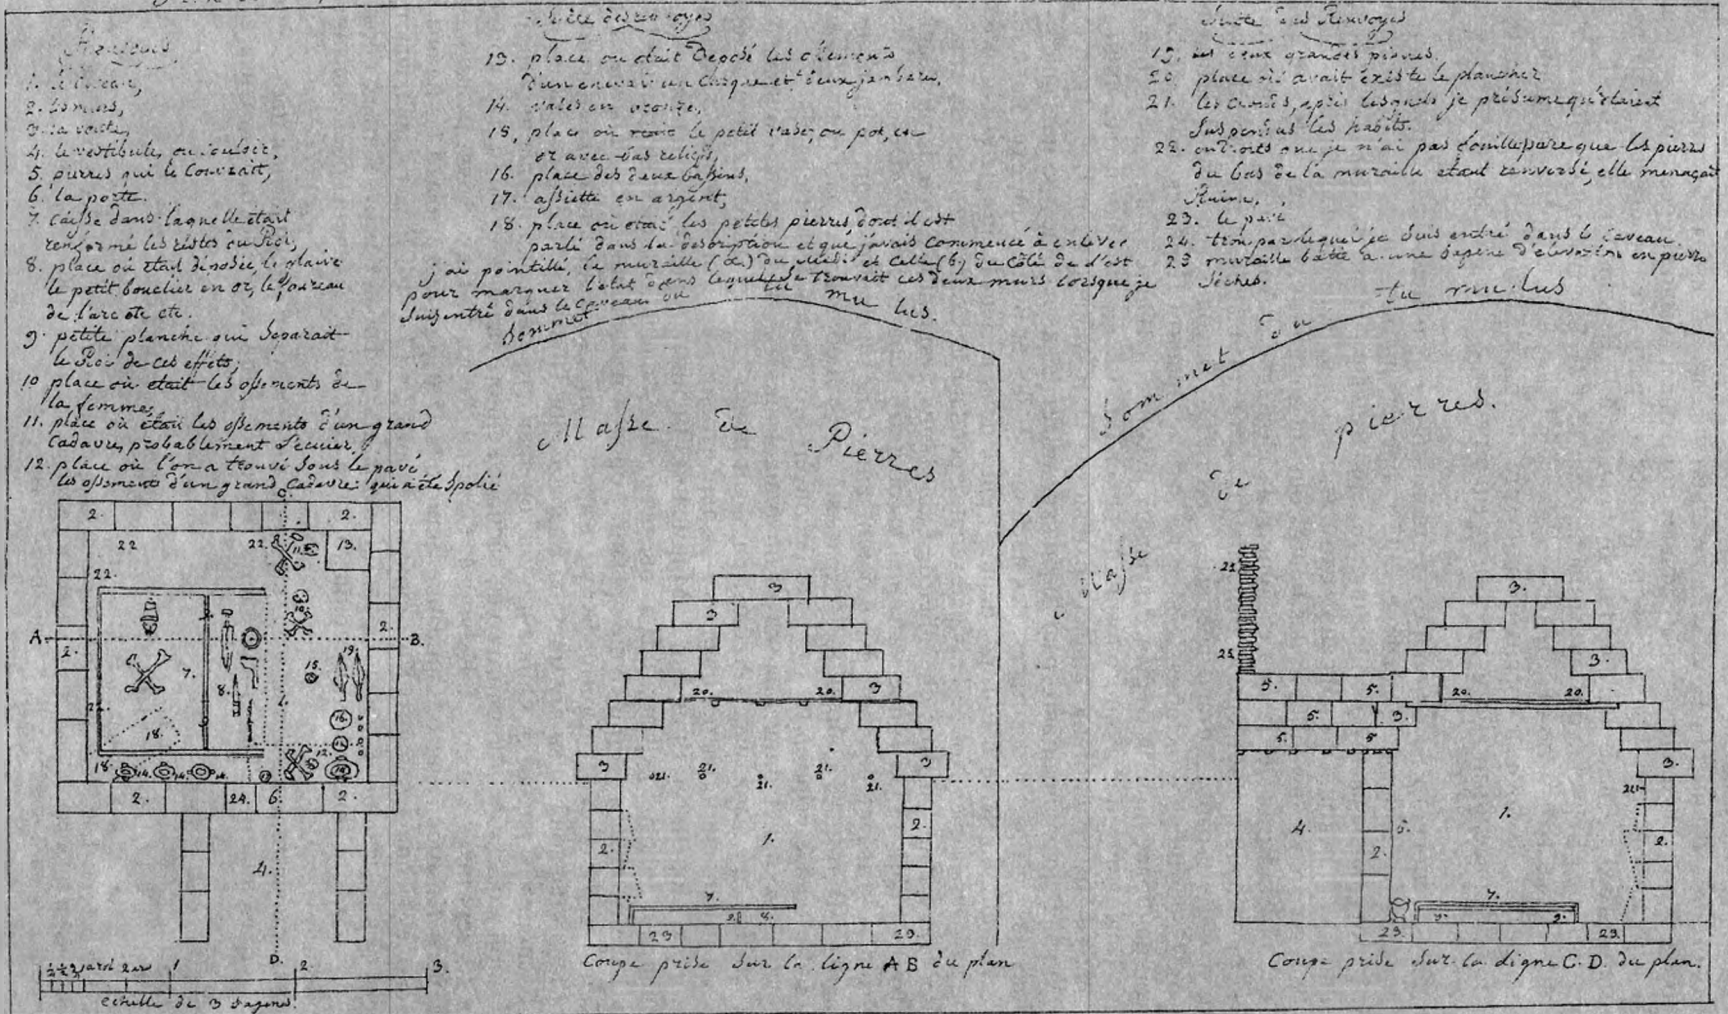 Renvoyes
1. le Caveau,
2. les murs,
3. la voute,
4. le vestibule, ou couloir,
5. pierres qui le Couvrait,
6. la porte.
7. Caisse dans laquelle était
renfermé les restes du Roi,
8. place où était déposée, le glaive
le petit bouclier en or, le foureau
de l'arc etc etc.
9. petite planche qui Separait
le Roi de ces effets,
10 place où etait les ossements de
la femme,
11. place où était les ossements d'un grand
Cadavre, probablement l'ecuier,
12. place où l'on a trouvé Sous le pavé
les ossements d'un grand Cadavre qui a été Spolié
Suite des renvoyes
13. place, ou était Déposé les ossements
d'un cheval un Casque et deux jambieres,
14. vases en bronze,
15, place où était le petit vase, ou pot, en
or avec bas reliefs,
16. place des deux bassins,
17. assiette en argent,
18. place où était les petites pierres, dont il est
parlé dans la description et que j'avais Commencé à enlever
j'ai pointillé, la muraille (a) du midi et Celle (b) du Côté de l'est
pour marquer l'état dans lequel Se trouvait ces deux murs lorsque je
Suis entré dans le Caveau
Suite des Renvoyes
19. les deux grandes piques.
20. place où avait existe le plancher
21. les clouds, après lesquels je présume qu'étaient
Suspendus les habits.
22. endroits que je n'ai pas fouillé pare que les pierres
du bas de la muraille etant renversé, elle menaçait
Ruine.
23. le pavé
24. trou par lequel je Suis entré dans le Caveau.
25 muraille batie a une Sagene d'élévation en pierre
Sèches.
Sommet du tu mu lus.
Sommet du tu mu lus
Masse de Pierres
Masse de pierres.
C
2. 2.
22 22. 11. 13.
22.
10.
A B.
2. 2.
7. 8. 15. 19.
18. 16.
17.
12.
18. 14. 14. 14.
2. 24. 6. 2.
4.
D.
1 2 3.
echelle de 3 Sagenes
3
3
20. 20. 3
3 3
21. 21. 21. 21. 21.
1.
2. 2.
7.
9. 8.
23 23.
Coupe prise Sur la ligne A B du plan
25
25.
3.
3.
5. 5. 20. 20.
5. 3.
5. 5
3.
21.
4. 6. 1.
2. 2.
7.
9. 9.
23. 23.
Coupe prise Sur la ligne C. D. du plan.